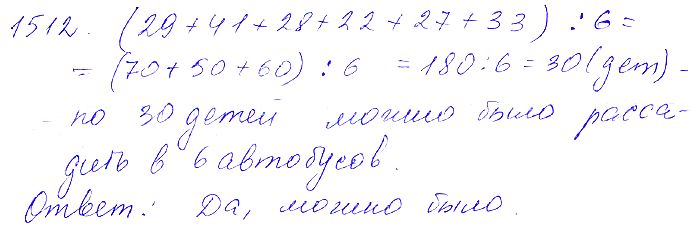 1512. (29+41+28+22+27+33) : 6 =
= (70+50+60) : 6 = 180:6 = 30 (дет) -
- по 30 детей можно было расса-
дить в 6 автобусов.
Ответ: Да, можно было.